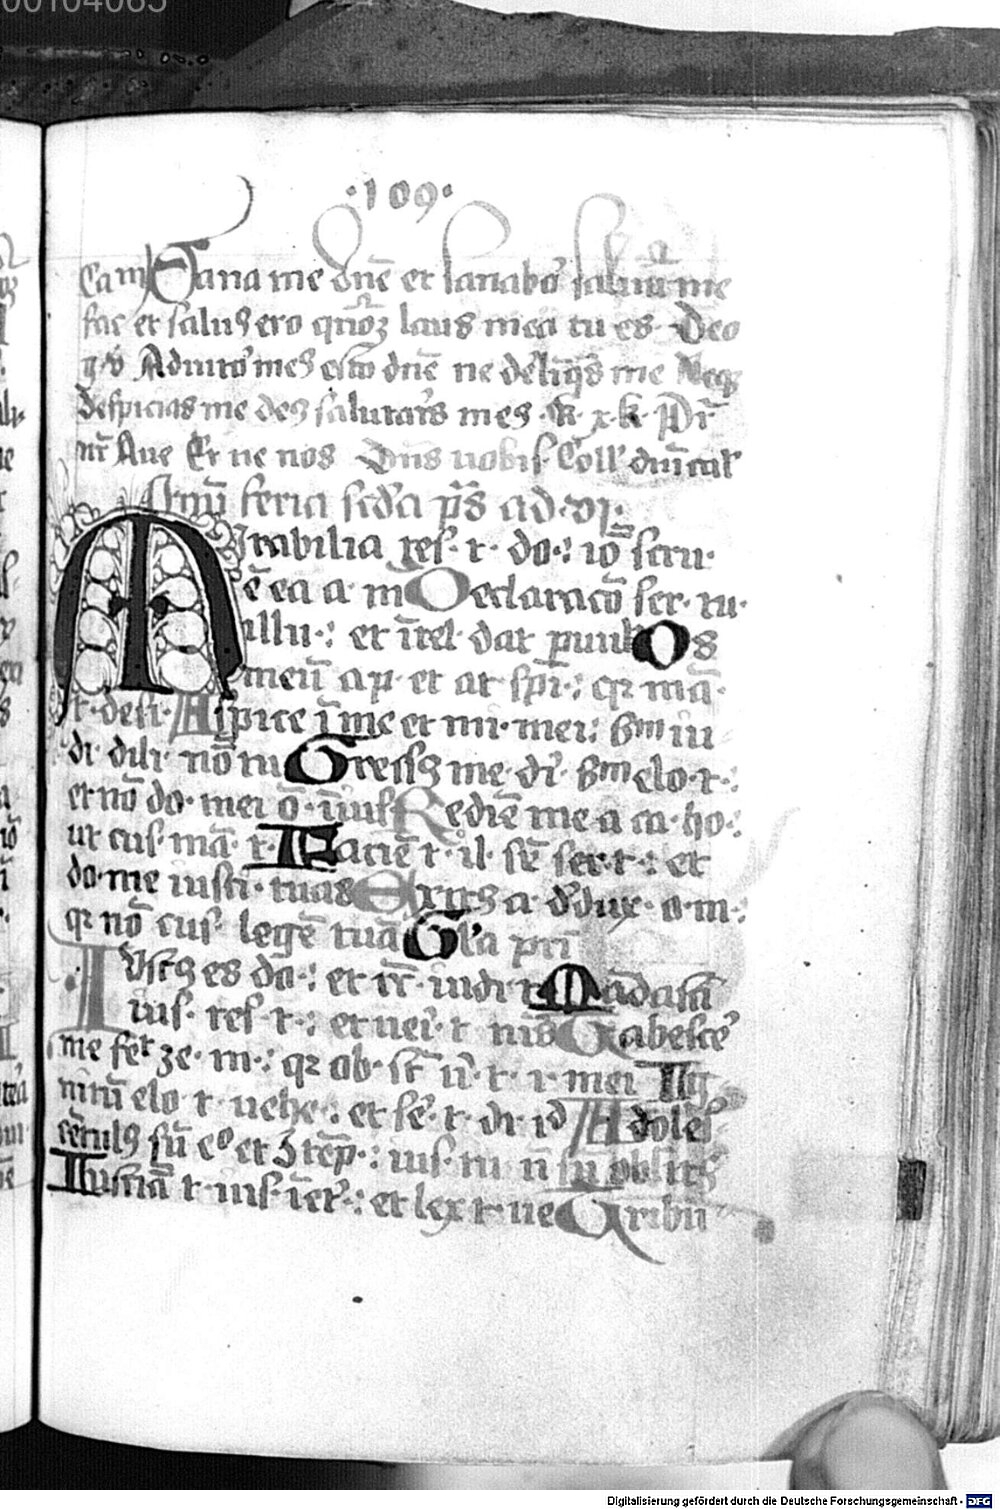 00104065
·109·
Cam Sana me dn̄e et sanabor saluū me
fac et salus ero qm̄ laus mea tu es Deo
g· v Adiutor meus esto dn̄e ne derelīqs me Neqꝫ
despicias me deus salutaris meus k· x·k· Pr̄
nr̄ Aue Et ne nos Dn̄s uobis Coll
feria scd̄a p̄s ad vj·
Mirabilia tes· t· do·: iō scru·
ē ea a· m Declaracō ser· tu·
illu·: et ītel· dat paruul Os
meū ap· et at· spi·: qꝛ mā·
t· desi· Aspice ī me et mi· mei: sm iu
di· dili· nō tu Gressus me· di· sm elo· t·:
et nō do· mei ō· iīus Redīe me a ca· ho·:
ut cus· mā· t· Faciē t· il· sr̄ ser· t·: et
do· me iusti· tuas Exitus a· ddux· o· m·:
qꝛ nō cus· legē tuā Gl'a pri
Iustus es do·: et rc̄ iudi t Mādasti
ius· tes· t·: et ueī· t nis Tabesce'
me fet ze· m·: qꝛ ob· st̄ ū· t· i· mei Ig
nitū elo· t· uehe·: et se· t· di· id Adoles
cētulus sū eo et gtep·: ius· tu n̄ sū oblitus
Iusticia t· ius· ī eter·: et lex t· ue Tribu
Digitalisierung gefördert durch die Deutsche Forschungsgemeinschaft - DFG